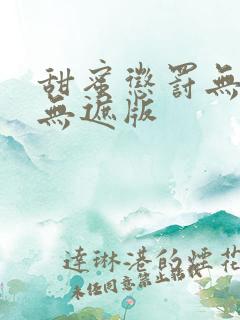 甜蜜懲罰無
無遮版
達琳港的煙花
未经同意禁止转载